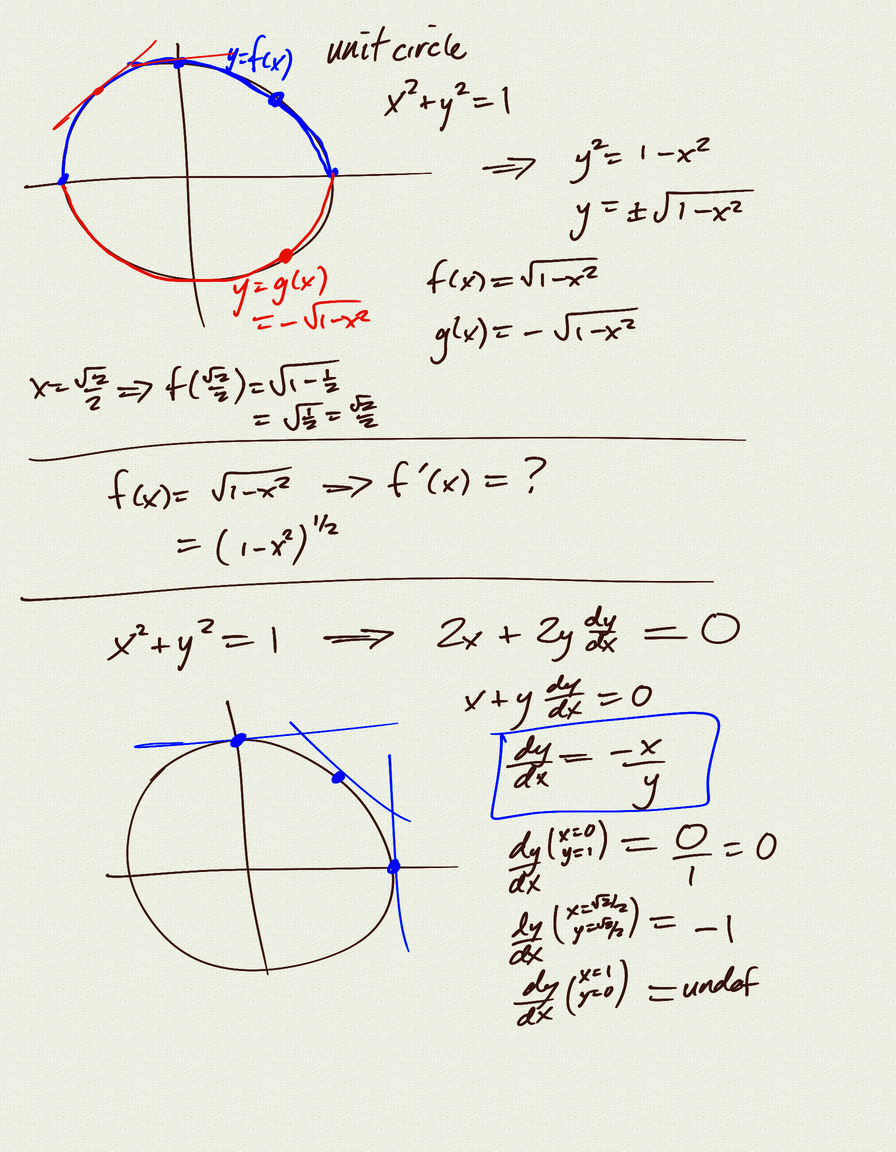 y=f(x)
unit circle
x²+y²=1
⟹ y²= 1-x²
y = ±√(1-x²)
y=g(x)
=-√(1-x²)
f(x)=√(1-x²)
g(x)= -√(1-x²)
x=√2/2 ⟹ f(√2/2)=√(1-1/2)
= √(1/2) = √2/2
f(x)= √(1-x²) ⟹ f'(x) = ?
= (1-x²)^1/2
x²+y²=1 ⟹ 2x + 2y dy/dx = 0
x+y dy/dx = 0
dy/dx = -x/y
dy/dx (x=0 y=1) = 0/1 = 0
dy/dx (x=√2/2 y=√2/2) = -1
dy/dx (x=1 y=0) = undef